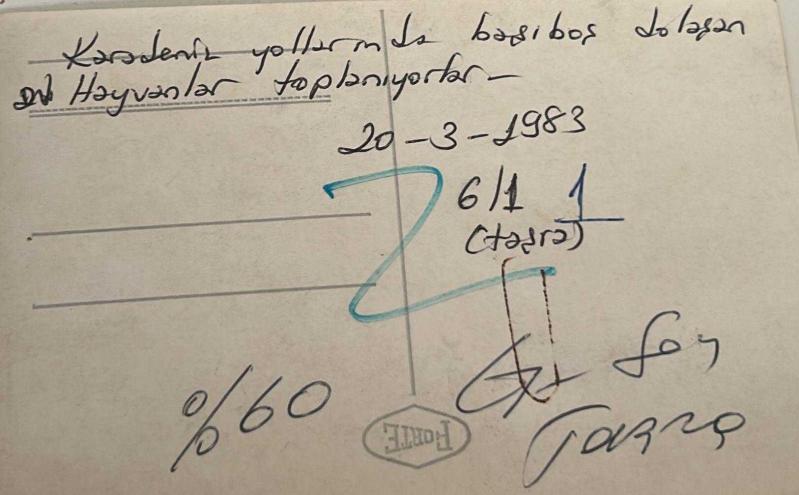 Karadeniz yollarında başıboş dolaşan
Hayvanlar toplanıyorlar-
20-3-1983
6/1 1
(taşra)
%60
Son
Taşra
FORTE